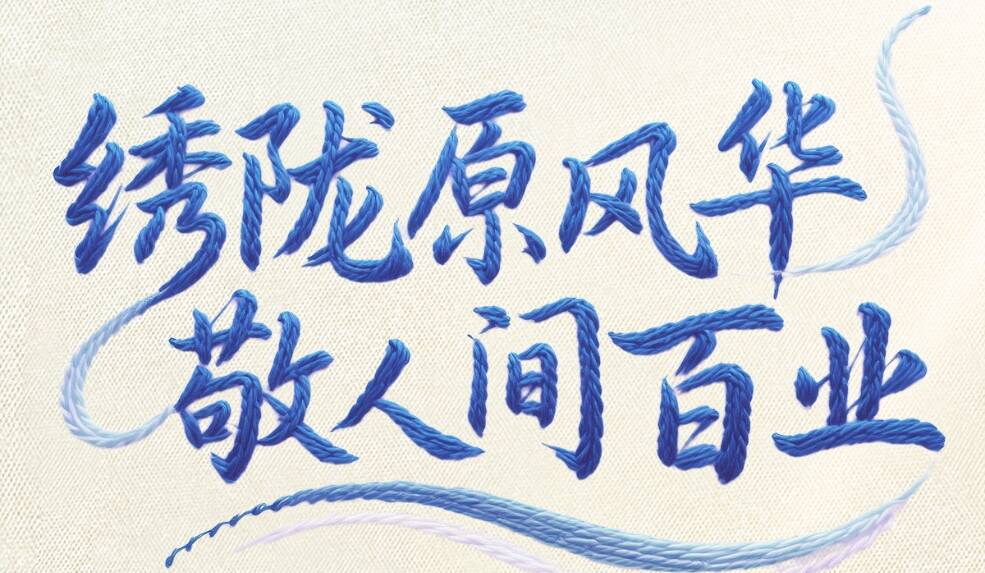 绣陇原风华
敬人间百业